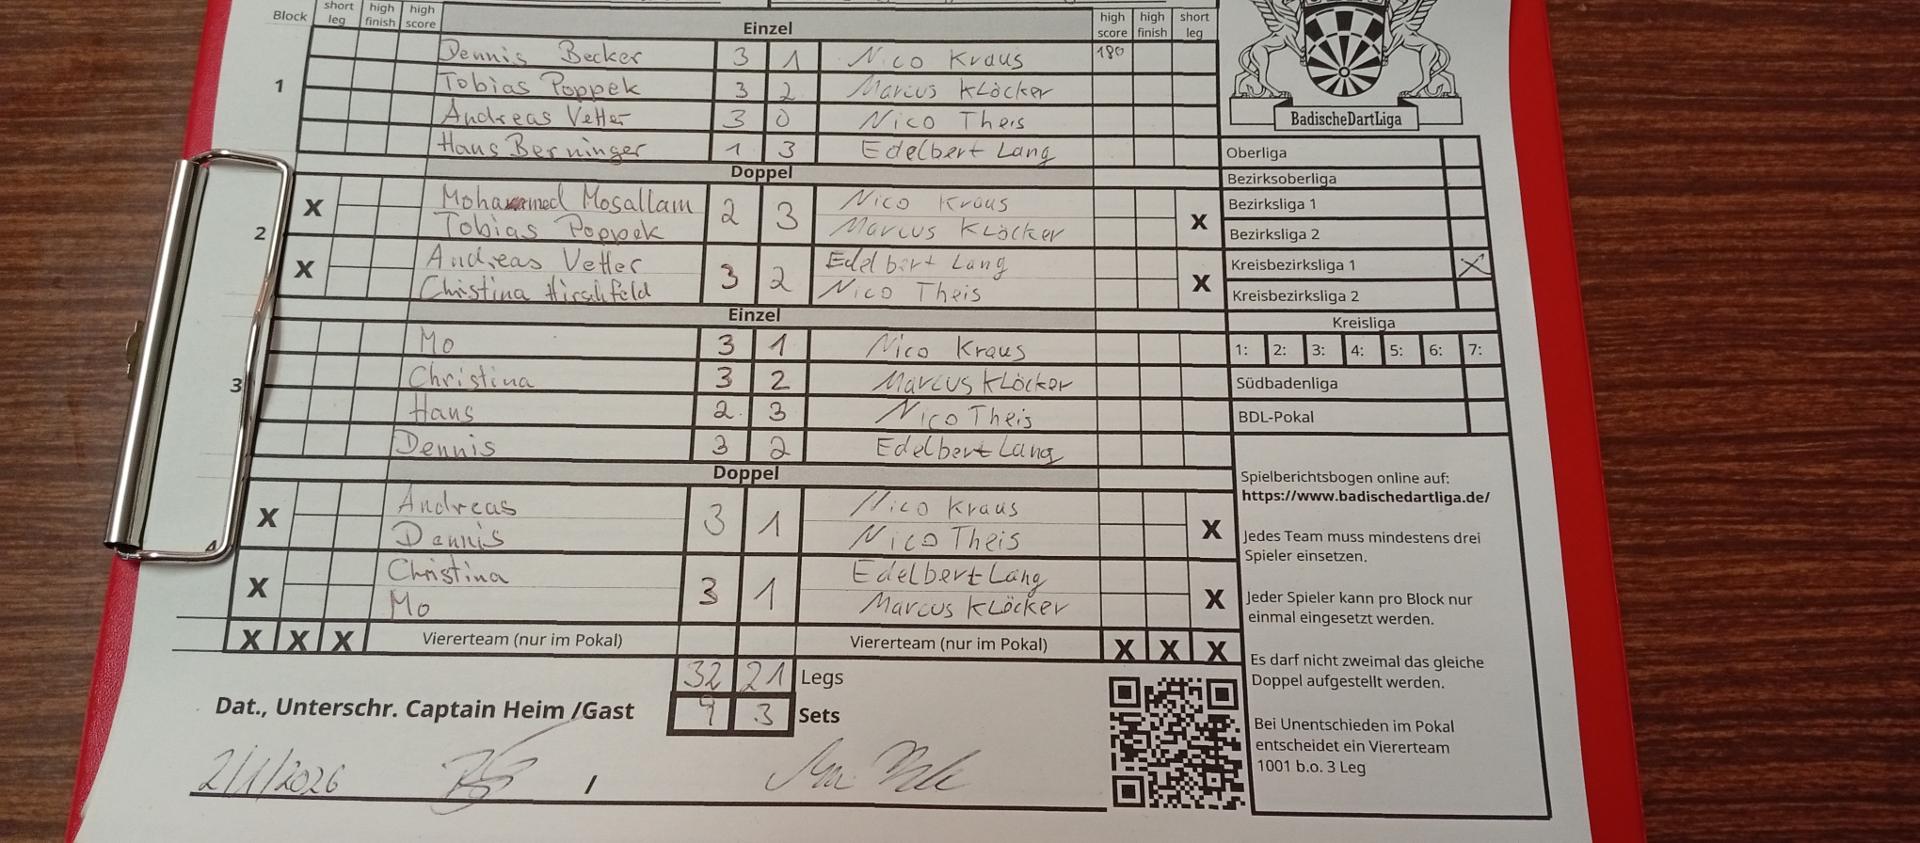 Block short leg high finish high score Einzel high score high finish short leg
1
Dennis Becker 3 1 Nico Kraus 180
Tobias Poppek 3 2 Marcus Klöcker
Andreas Vetter 3 0 Nico Theis
Hans Berninger 1 3 Edelbert Lang
Doppel
2
X Mohammed Mosallam 2 3 Nico Kraus X
Tobias Poppek Marcus Klöcker
X Andreas Vetter 3 2 Edelbert Lang X
Christina Hirschfeld Nico Theis
Einzel
3
Mo 3 1 Nico Kraus
Christina 3 2 Marcus Klöcker
Hans 2 3 Nico Theis
Dennis 3 2 Edelbert Lang
Doppel
4
X Andreas 3 1 Nico Kraus X
Dennis Nico Theis
X Christina 3 1 Edelbert Lang X
Mo Marcus Klöcker
X X X Viererteam (nur im Pokal) Viererteam (nur im Pokal) X X X
32 21 Legs
9 3 Sets
Dat., Unterschr. Captain Heim /Gast
2/1/2026 /
BadischeDartLiga
Oberliga
Bezirksoberliga
Bezirksliga 1
Bezirksliga 2
Kreisbezirksliga 1 X
Kreisbezirksliga 2
Kreisliga
1: 2: 3: 4: 5: 6: 7:
Südbadenliga
BDL-Pokal
Spielberichtsbogen online auf:
https://www.badischedartliga.de/
Jedes Team muss mindestens drei
Spieler einsetzen.
Jeder Spieler kann pro Block nur
einmal eingesetzt werden.
Es darf nicht zweimal das gleiche
Doppel aufgestellt werden.
Bei Unentschieden im Pokal
entscheidet ein Viererteam
1001 b.o. 3 Leg